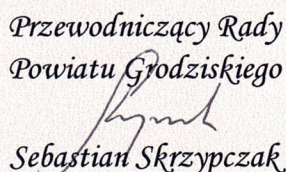 Przewodniczący Rady
Powiatu Grodziskiego
Sebastian Skrzypczak